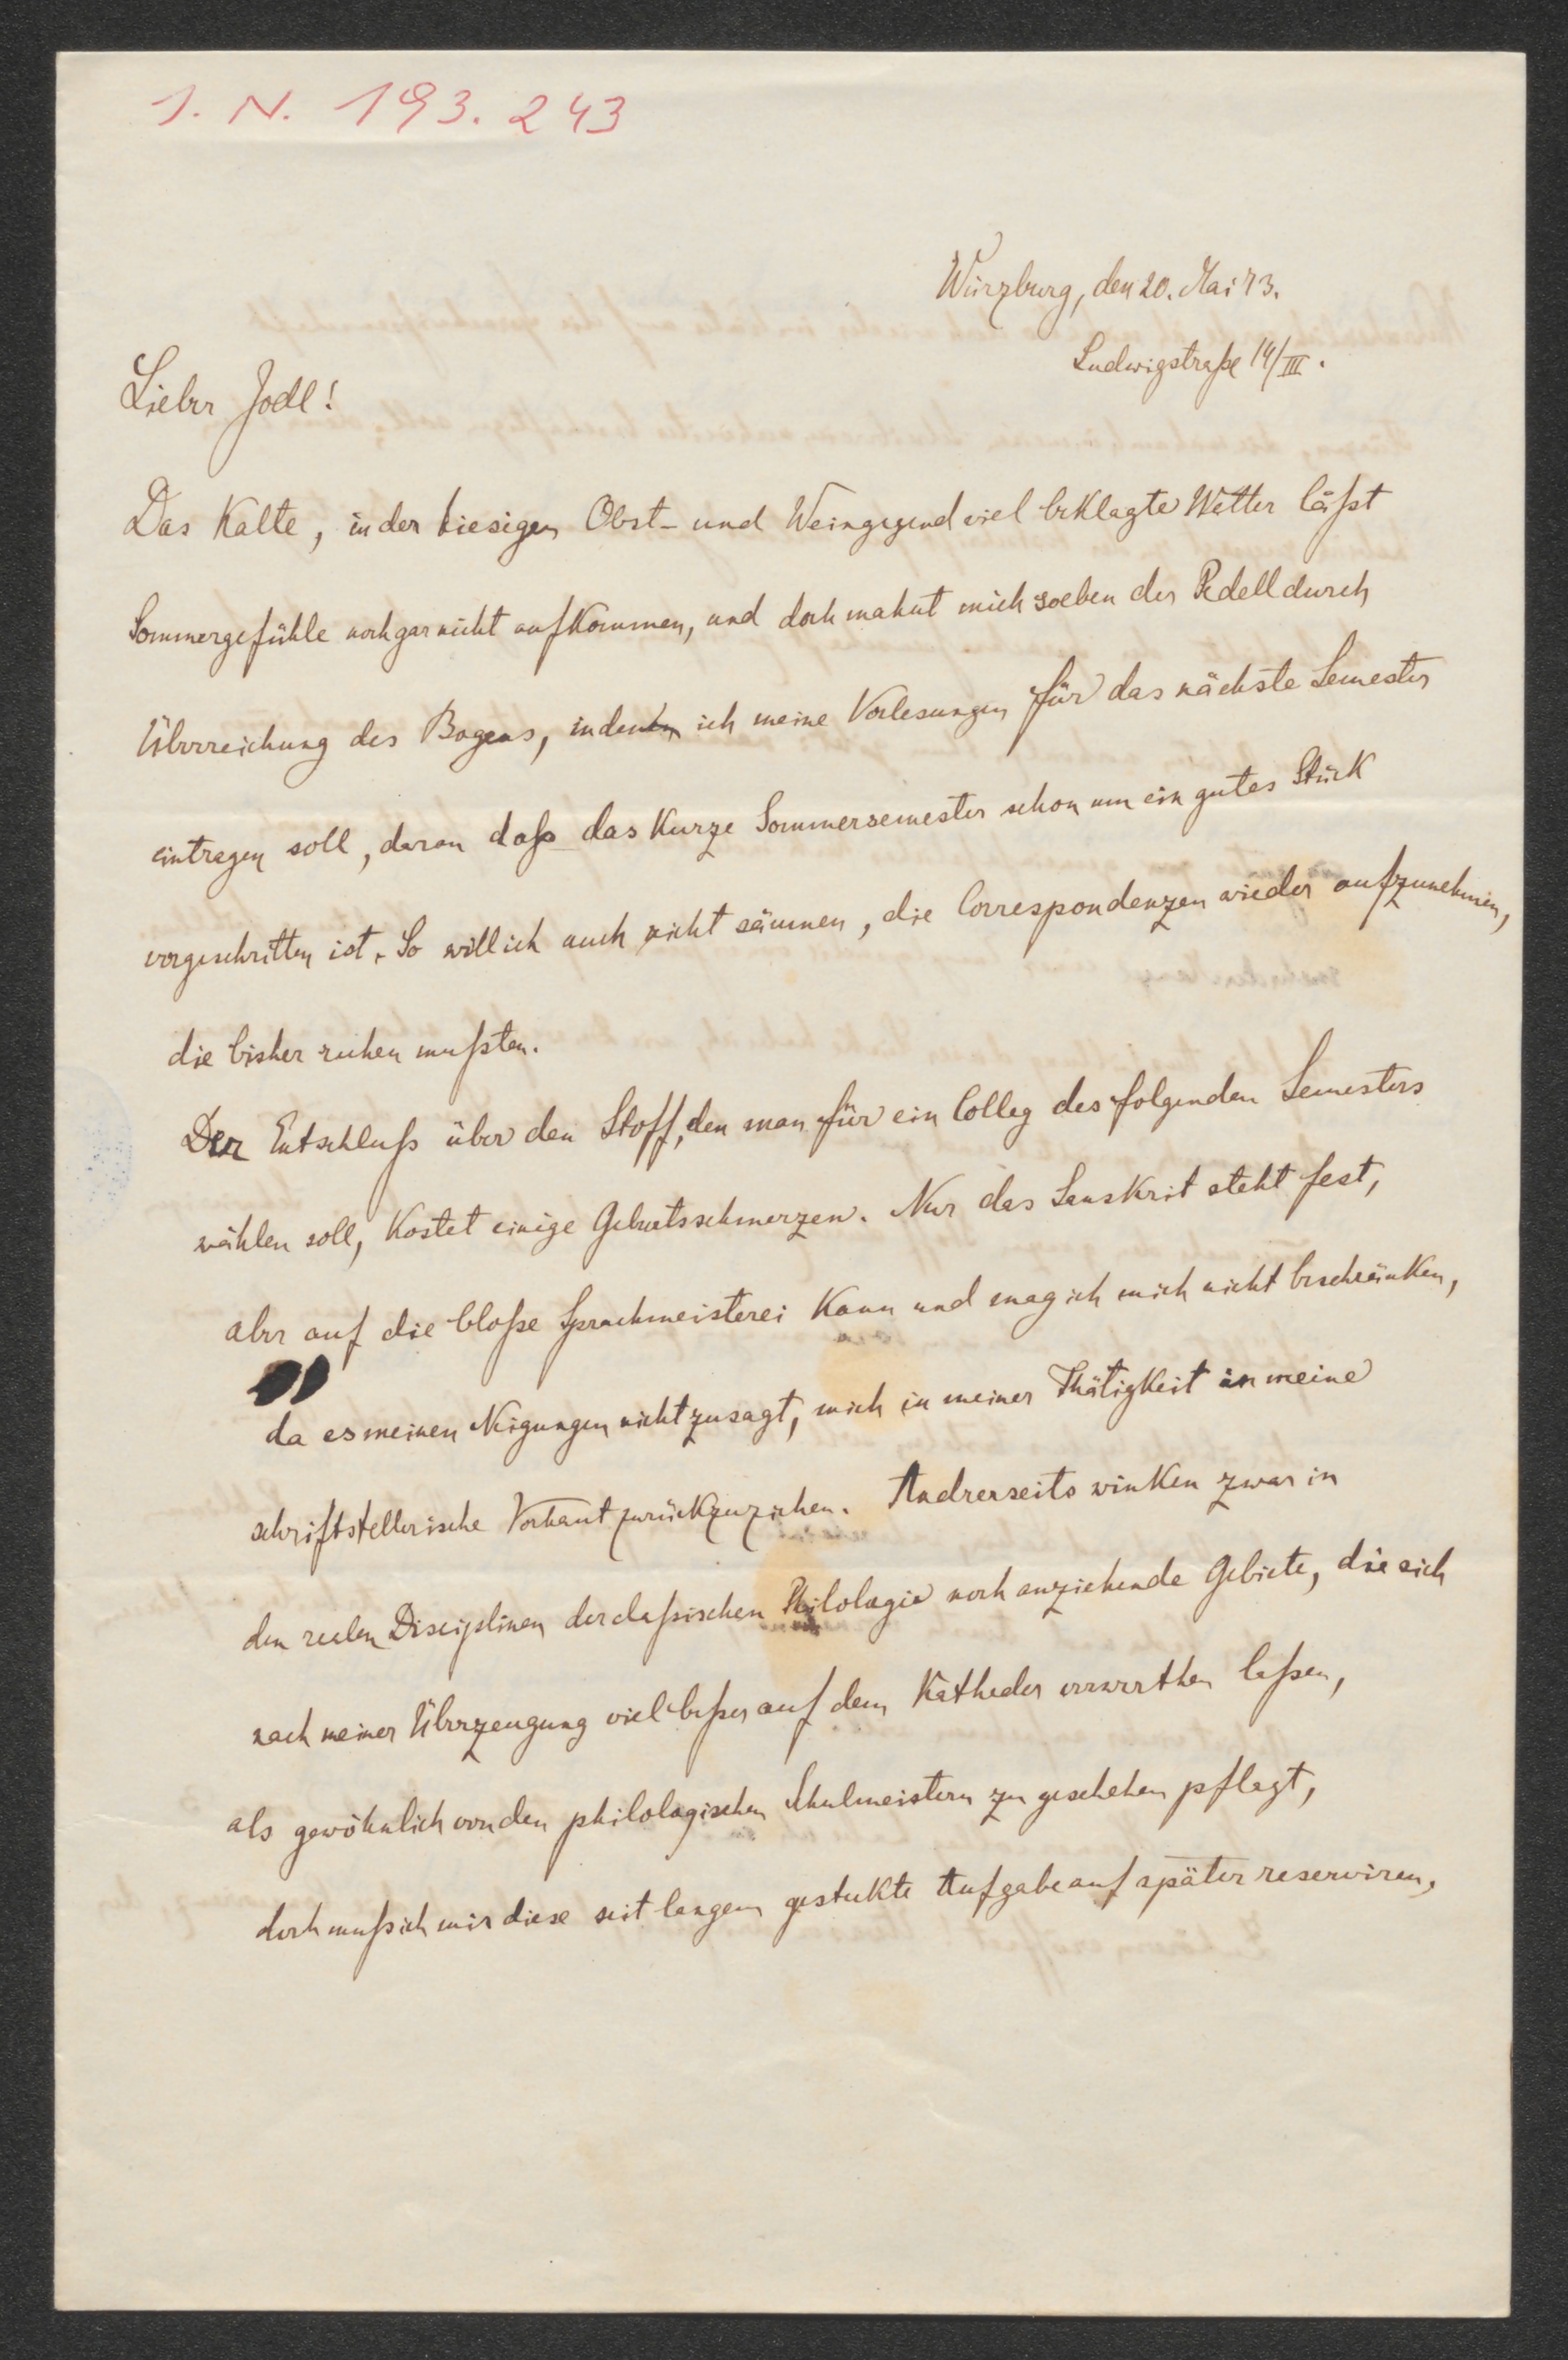 I. N. 193. 243
Würzburg, den 20. Mai 73.
Ludwigstraße 14/III.
Lieber Jodl!
Das kalte, in der hiesigen Obst- und Weingegend viel beklagte Wetter läßt
Sommergefühle noch gar nicht aufkommen, und doch mahnt mich soeben der Pedell durch
Überreichung des Bogens, in den ich meine Vorlesungen für das nächste Semester
eintragen soll, daran daß das kurze Sommersemester schon um ein gutes Stück
vorgeschritten ist. So will ich auch nicht säumen, die Correspondenzen wieder aufzunehmen,
die bisher ruhen mußten.
Der Entschluß über den Stoff, den man für ein Colleg des folgenden Semesters
wählen soll, kostet einige Geburtsschmerzen. Nur das Sanskrit steht fest,
aber auf die bloße Sprachmeisterei kann und mag ich mich nicht beschränken,
da es meinen Neigungen nicht zusagt, mich in meiner Thätigkeit in meine
schriftstellerische Vorhaut zurückzuziehen. Andrerseits winken zwar in
den realen Disciplinen der claßischen Philologie noch anziehende Gebiete, die sich
nach meiner Überzeugung viel beßer auf dem Katheder verwerthen laßen,
als gewöhnlich von den philologischen Schulmeistern zu geschehen pflegt,
doch muß ich mir diese seit langem gesteckte Aufgabe auf später reserviren,